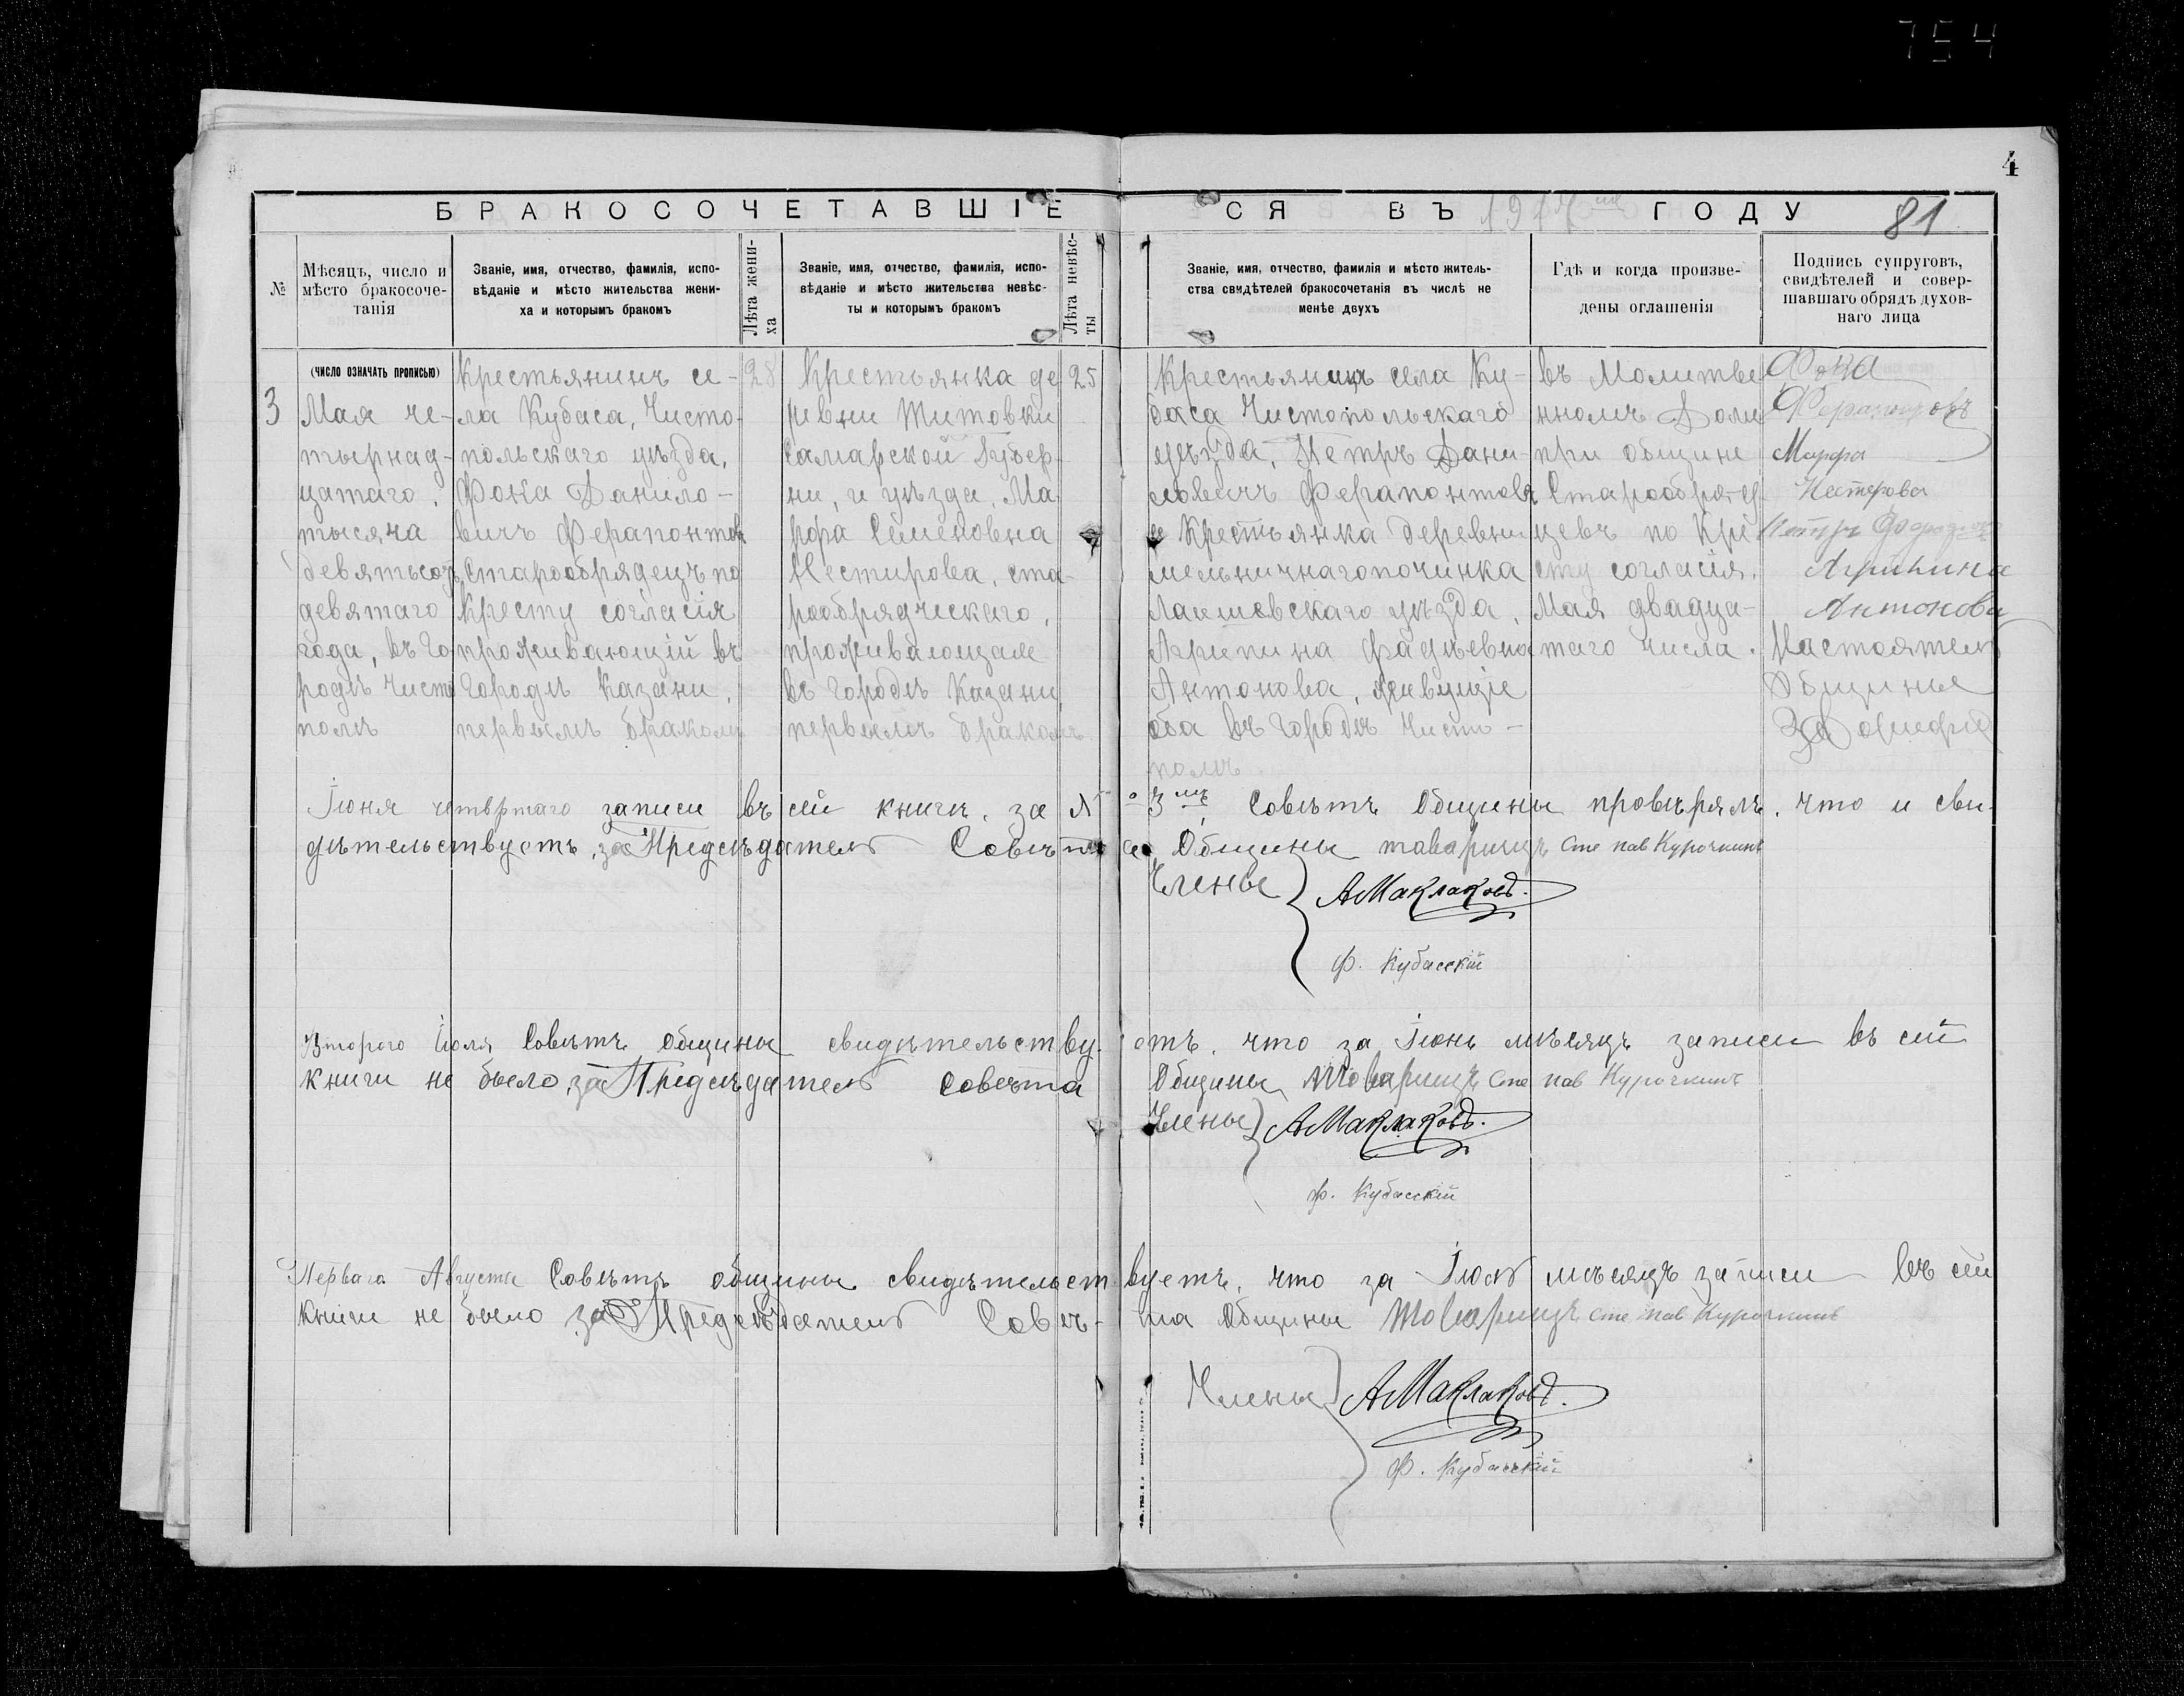 754
4
БРАКОСОЧЕТАВШІЕСЯ ВЪ ГОДУ
81
№
Мѣсяцъ, число и мѣсто бракосоче-
танія
Званіе, имя, отчество, фамилія, испо-
вѣданіе и мѣсто жительства жени-
ха и которымъ бракомъ
Лѣта жени-
ха
Званіе, имя, отчество, фамилія, испо-
вѣданіе и мѣсто жительства невѣс-
ты и которымъ бракомъ
Лѣта невѣс-
ты
Званіе, имя, отчество, фамилія и мѣсто житель-
ства свидѣтелей бракосочетанія въ числѣ не
менѣе двухъ
Гдѣ и когда произве-
дены оглашенія
Подпись супруговъ,
свидѣтелей и совер-
шавшаго обрядъ духов-
наго лица
(ЧИСЛО ОЗНАЧАТЬ ПРОПИСЬЮ)
3
Мая че-
тырнад-
цатаго,
тысяча
девятьсотъ
девятаго
года, въ Го-
родѣ Чисто
полѣ
Крестьянинъ се-
ла Кубаса, Чисто-
польскаго уѣзда,
Фока Данило-
вичъ Ферапонтов
Старообрядецъ по
Кресту согласія
проживающій въ
Городѣ Казани,
первымъ бракомъ
28
Крестьянка де
ревни Титовки
Самарской Губер-
ни, и уѣзда, Ма
рфа Семеновна
Нестирова, ста-
рообрядческаго,
проживающая
въ Городѣ Казани,
первымъ бракомъ
25
Крестьянинъ села Ку-
баса Чистопольскаго
уѣзда, Петръ Дани-
ловичъ Ферапонтовъ
и Крестьянка деревни
мельничнагопочинка
Лаишевскаго уѣзда,
Агрипина Фадѣевна
Антонова, живущіе
оба въ Городѣ Чисто-
полѣ.
въ Молитве
нномъ Доми
при общине
Старообряд
цевъ по Кре
сту согласія.
Мая двадца-
таго числа.
Фока
Ферапонтовъ
Марфа
Нестерова
Петръ
Агрипина
Антонова
Настоятель
Общины
Іюня четвртаго записи въ сей книги, за № 3мъ, Совѣтъ Общины провѣрялъ, что и сви-
дѣтельствуетъ, за Предсѣдателя Совѣта Общины товарищъ Сте пав Курочкинъ
Члены АМаклаковъ.
Ф. Кубасскій
Второго Іюля Совѣтъ Общины свидѣтельствуетъ, что за Іюнь мѣсяцъ записи въ сей
книги не было, за Предсѣдателя Совѣта Общины Товарищъ Сте пав Курочкинъ
Члены АМаклаковъ.
Ф. Кубасскій
Перваго Августа Совѣтъ общины свидѣтельствуетъ, что за Іюль мѣсяцъ записи въ сей
книги не было за Предсѣдателя Совѣ-та Общины Товарищъ Сте пав Курочкинъ
Члены АМаклаковъ.
Ф. Кубасскій